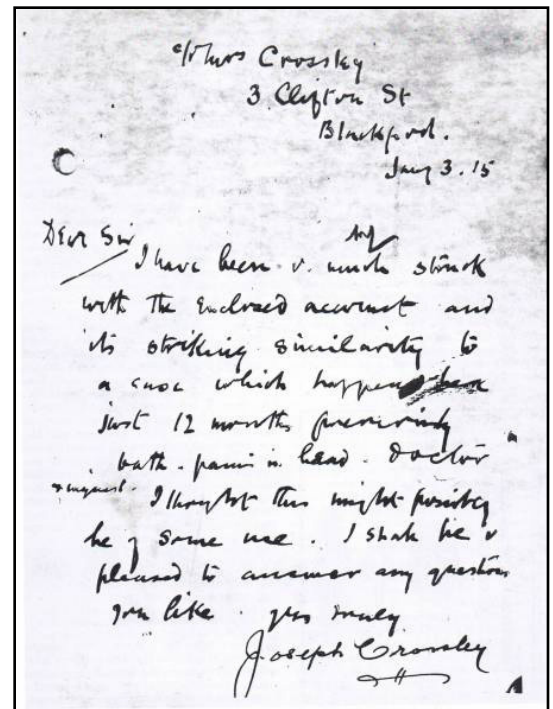 c/o Mrs Crossley
3 Clifton St
Blackpool.
Jany 3. 15
Dear Sir
I have been v. much struck
with the enclosed account and
its striking similarity to
a case which happened here
just 12 months previously
bath. pains in head. Doctor
& inquest.
I thought this might possibly
be of some use. I shall be v
pleased to answer any questions
you like yrs truly
Joseph Crossley